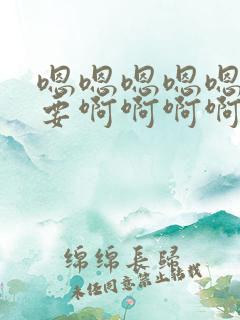 嗯嗯嗯嗯嗯
要啊啊啊啊
绵绵長歸
未经同意禁止转载